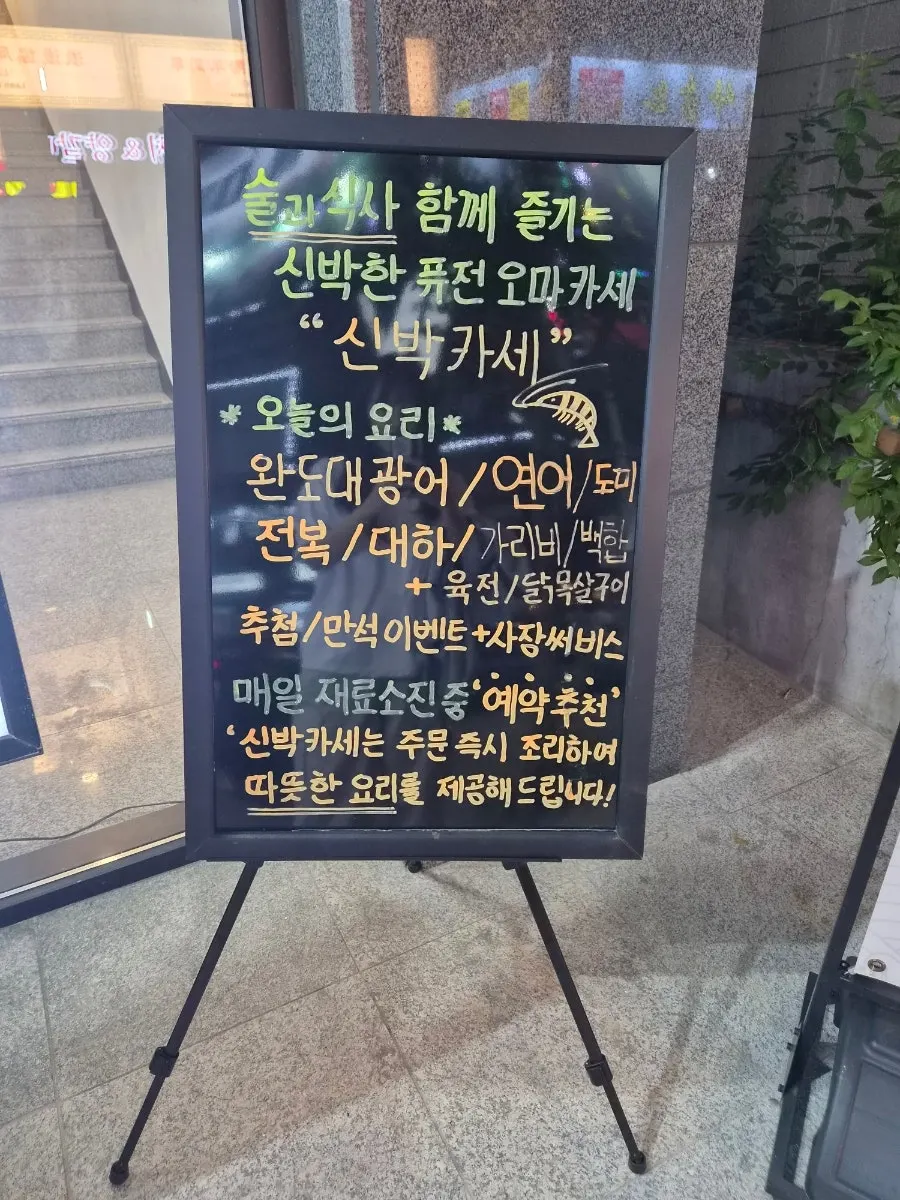 술과 식사 함께 즐기는
신박한 퓨전 오마카세
“신박카세”
* 오늘의 요리 *
완도대광어 / 연어 / 도미
전복 / 대하 / 가리비 / 백합
+ 육전 / 닭목살구이
추첨 / 만석이벤트 + 사장써비스
매일 재료소진중 '예약추천'
'신박카세는 주문 즉시 조리하여
따뜻한 요리를 제공해드립니다!